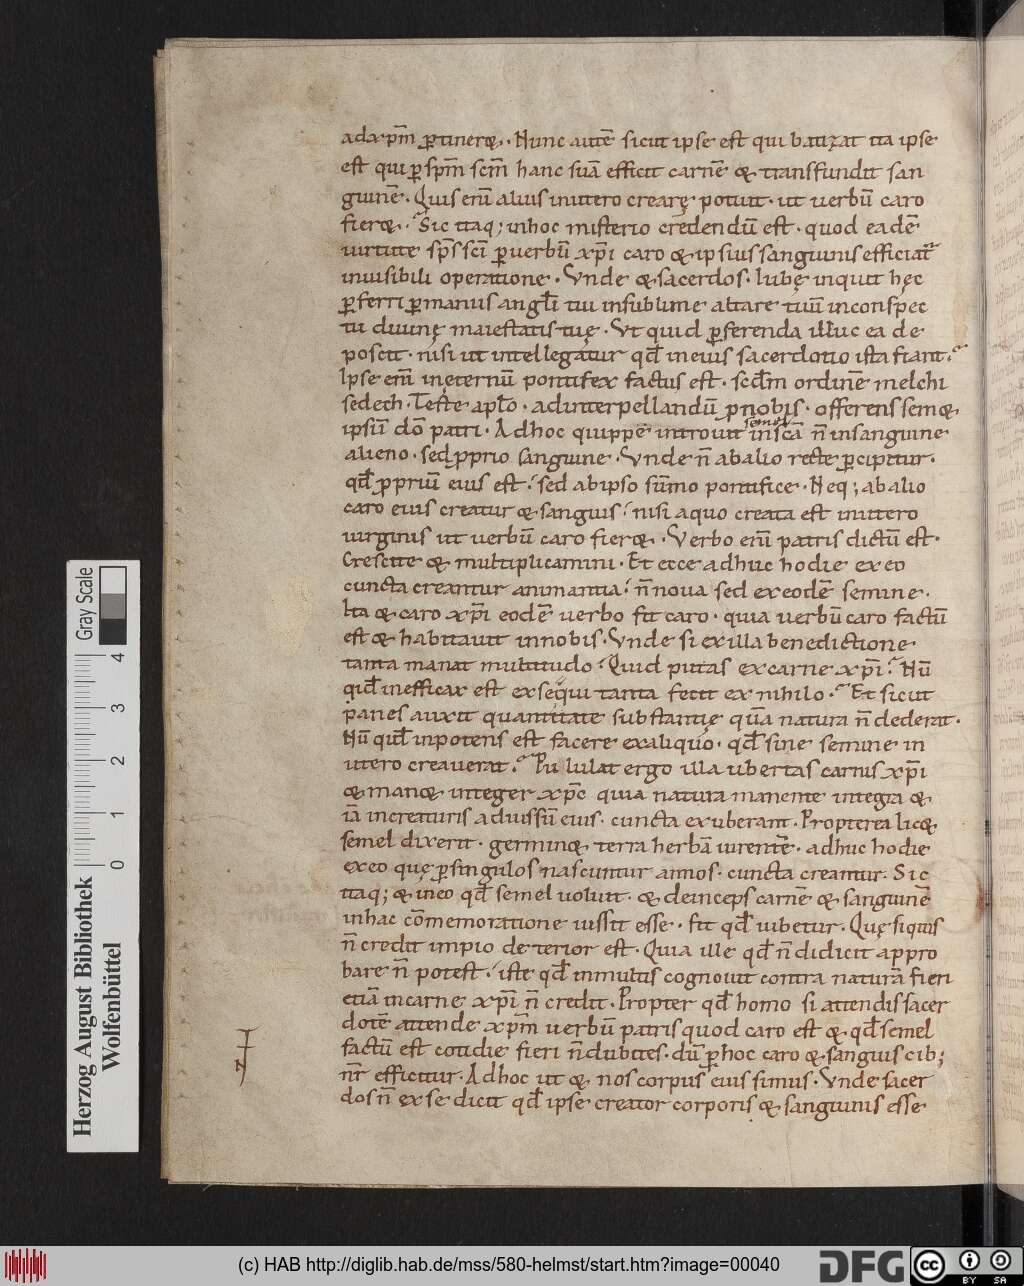 ad xp̄m ꝑtinere. Hunc autē sicut ipse est qui batizat ita ipse
est qui ꝑ sp̄m sc̄m hanc suā efficit carnē & transfundit san
guinē. Quis enī alius in utero creare potuit. ut uerbū caro
fier&. Sic itaq; in hoc misterio credendū est. quod eadē
uirtute sp̄s sc̄i ꝑ uerbū xp̄i caro & ipsius sanguinis efficiat᷑
inuisibili operatione. Vnde & sacerdos. Iubę inquit hęc
ꝑferri ꝑ manus angl̄i tui in sublime altare tuū in conspec
tu diuinę maiestatis tuę. Vt quid ꝑferenda illuc ea de
poscit. nisi ut intellegatur qd̄ in eius sacerdotio ista fiant.
Ipse enī in ęternū pontifex factus est. scd̄m ordinē melchi
sedech. Teste apl̄o. ad interpellandū ꝓ nobis. offerens sem&
ipsū dō patri. Ad hoc quippe introiuit semel in sc̄a n̄ in sanguine
alieno. sed ꝓprio sanguine. Vnde n̄ ab alio recte ꝑcipitur.
qd̄ ꝓpriū eius est. sed ab ipso sūmo pontifice. Neq; ab alio
caro eius creatur & sanguis. nisi a quo creata est in utero
uirginis ut uerbū caro fier&. Verbo enī patris dictū est.
Crescite & multiplicamini. Et ecce adhuc hodie ex eo
cuncta creantur animantia. n̄ noua sed ex eodē semine.
Ita & caro xp̄i eodē uerbo fit caro. quia uerbū caro factū
est & habitauit in nobis. Vnde si ex illa benedictione
tanta manat multitudo. Quid putas ex carne xp̄i. Nū
qid inefficax est exsequi tanta fecit ex nihilo. Et sicut
panes auxit quantitate substantię qua natura n̄ dederat.
Nū quid inpotens est facere ex aliquo. qd̄ sine semine in
utero creauerat. Pululat ergo illa ubertas carnis xp̄i
& man& integer xp̄c quia natura manente integra &
iā in creaturis ad iussū eius. cuncta exuberant. Propterea lic&
semel dixerit. germin& terra herbā uirentē. adhuc hodie
ex eo quę ꝑ singulos nascuntur annos. cuncta creantur. Sic
itaq; & in eo qd̄ semel uoluit. & deinceps carnē & sanguinē
in hac cōmemoratione iussit esse. fit qd̄ iubetur. Quę si quis
n̄ credit impio deterior est. Quia ille qd̄ n̄ didicit appro
bare n̄ potest. iste qd̄ in multis cognouit contra naturā fieri
etiā in carne xp̄i n̄ credit. Propter qd̄ homo si attendis sacer
dotē attende xp̄m uerbū patris quod caro est & qd̄ semel
factū est cotidie fieri n̄ dubites. dū ꝑ hoc caro & sanguis cib;
nr̄ efficitur. Ad hoc ut & nos corpus eius simus. Vnde sacer
dos n̄ ex se dicit qd̄ ipse creator corporis & sanguinis esse
Gray Scale
4
3
2
1
0
Herzog August Bibliothek
Wolfenbüttel
(c) HAB http://diglib.hab.de/mss/580-helmst/start.htm?image=00040
DFG
cc
BY SA